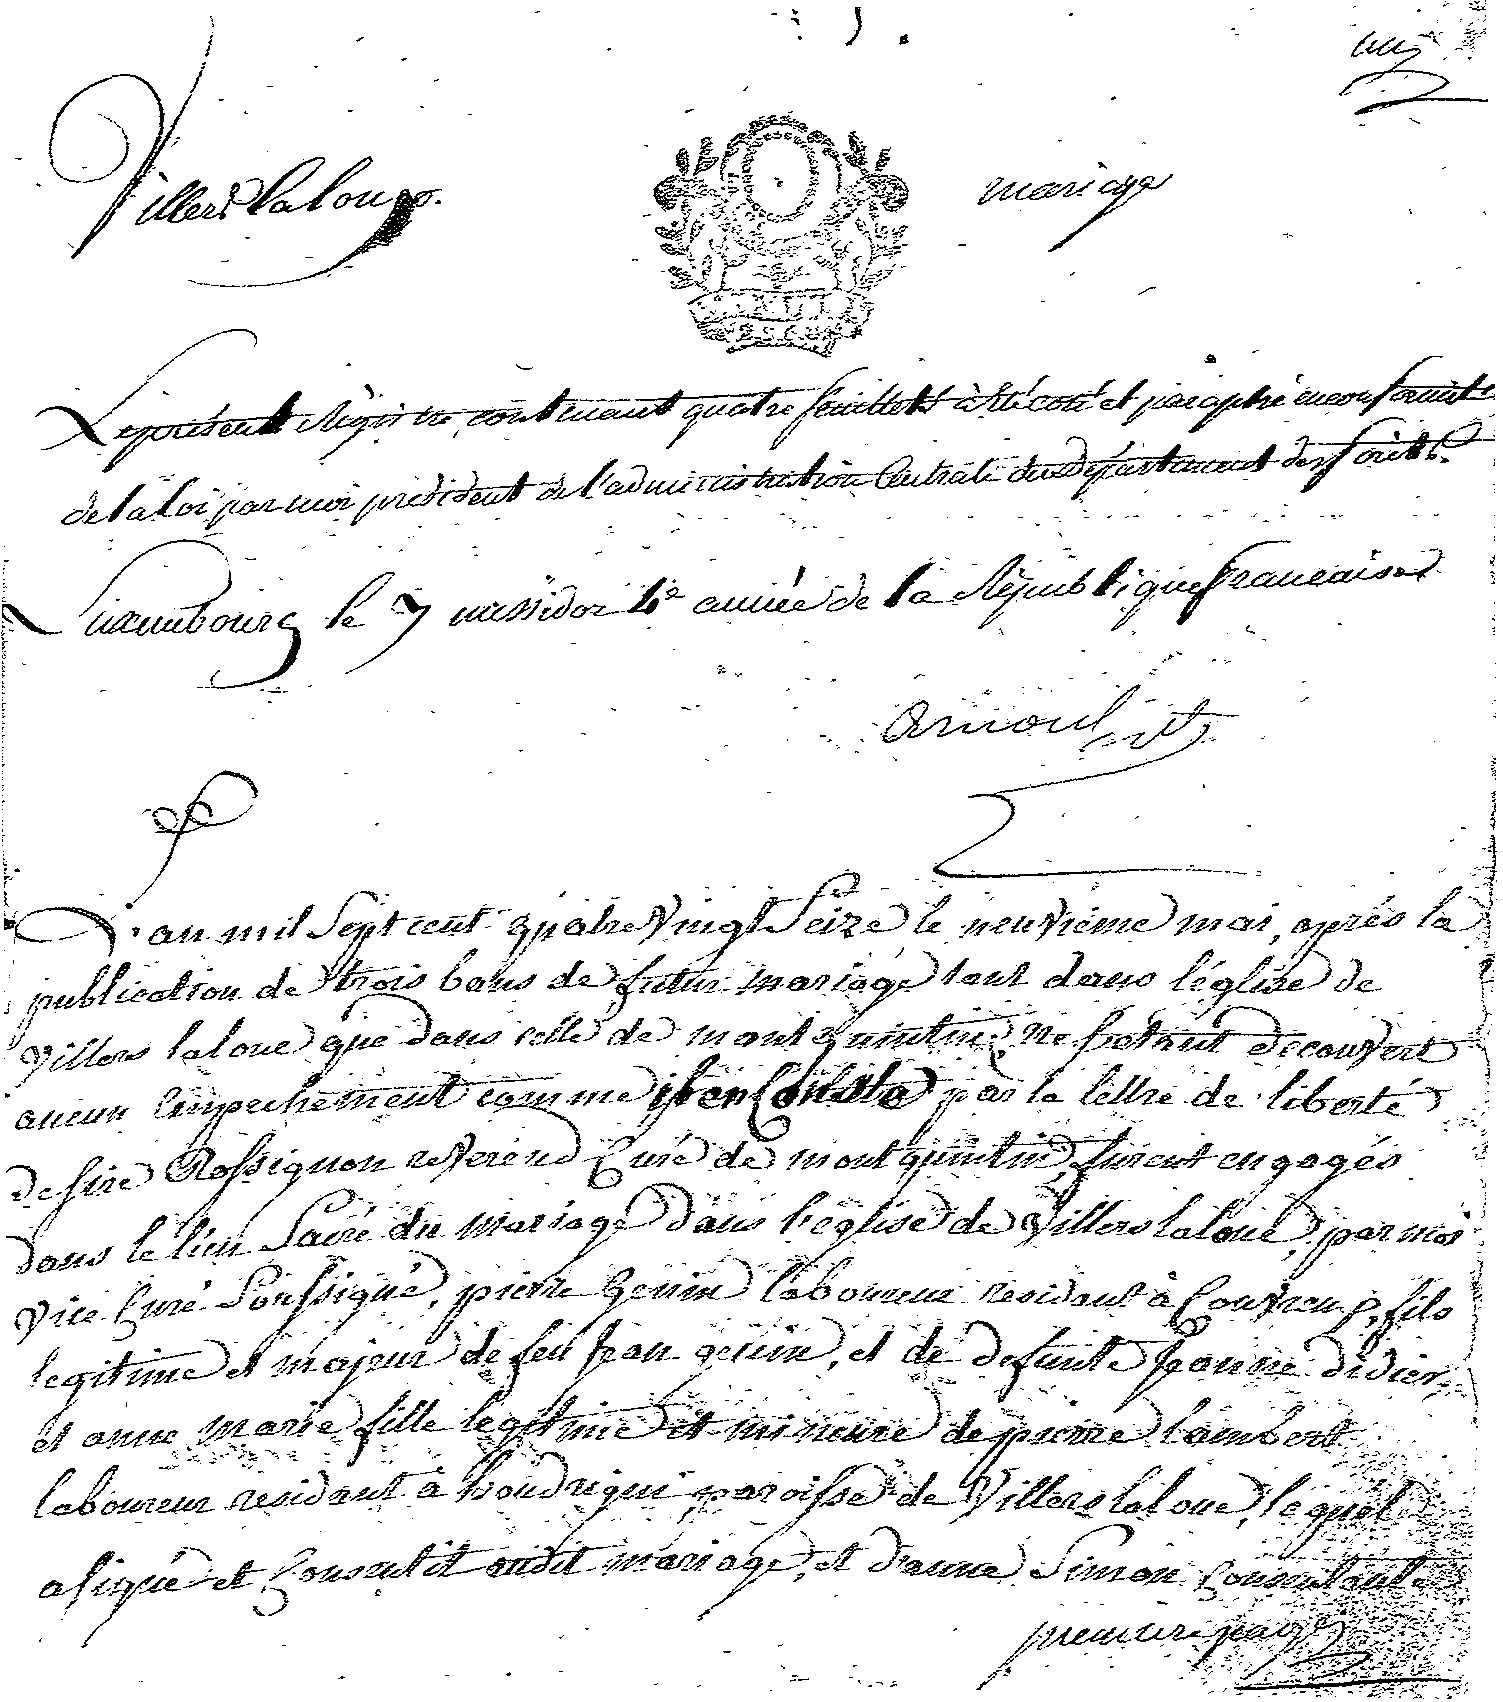 un
Villers laloup.
mariage
Le présent Régistre contenant quatre feuillets à été coté et paraphé en conformité
de la loi par moi président de l'administration Centrale du département des forêts.
Luxembourg le 7 messidor 4e année de la République française
arnoul
L'an mil Sept cent quatre Vingt Seize le neuvième mai, après la
publication de trois bans de futur mariage tant dans l'église de
Villers laloue que dans celle de montquintin, ne s'etant decouvert
aucun empechement comme il en Consta par la lettre de liberté
de sire Rossignon reverend Curé de montquintin, furent engagés
dans le lien Sacré du mariage dans l'église de Villers laloue, par moi
vice Curé Soussigné, pierre genin laboureur residant à Couvreup, fils
legitime et majeur de feu Jean genin, et de defunte Jeanne didier,
et anne marie fille legitime et mineure de pierre lambert
laboureur residant à houdrigni, paroisse de Villers laloue, le quel
a signé et Consentit audit mariage, et d'anne Simon Consentante
premiere page